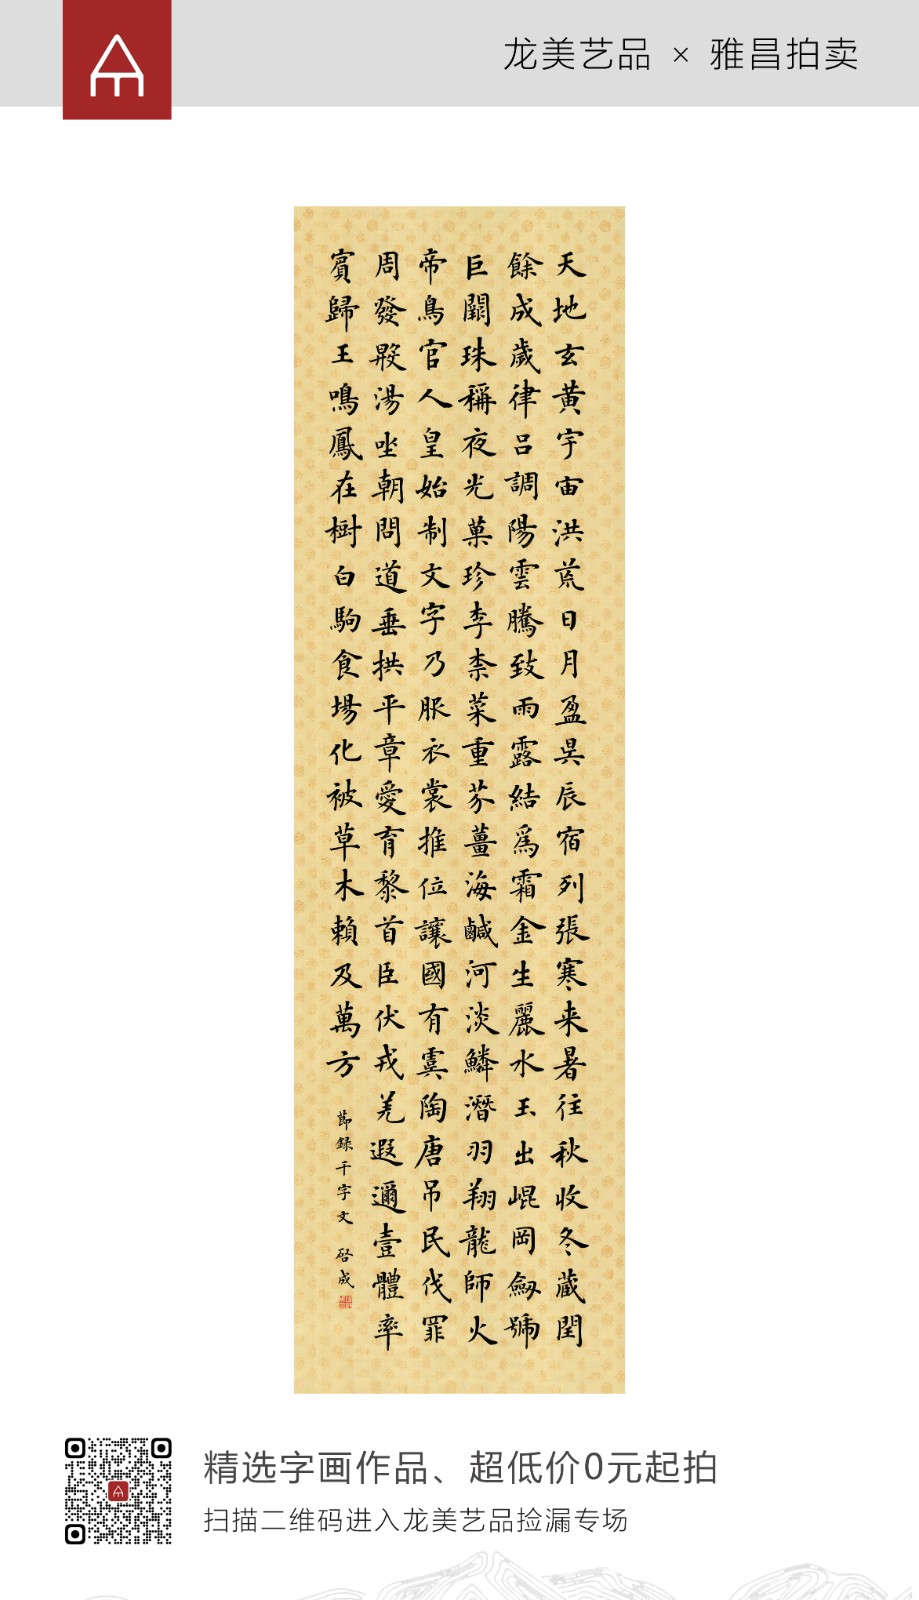 龙美艺品 × 雅昌拍卖
天地玄黄宇宙洪荒日月盈昃辰宿列張寒来暑往秋收冬蔵閏
餘成歲律呂調陽雲騰致雨露結爲霜金生麗水玉出崐岡劔號
巨闕珠稱夜光菓珍李柰菜重芥薑海鹹河淡鱗潛羽翔龍師火
帝鳥官人皇始制文字乃服衣裳推位讓國有虞陶唐吊民伐罪
周發殷湯坐朝問道垂拱平章愛育黎首臣伏戎羌遐邇壹體率
賓歸王鳴鳳在樹白駒食場化被草木賴及萬方
節録千字文 啓成
精选字画作品、超低价0元起拍
扫描二维码进入龙美艺品捡漏专场